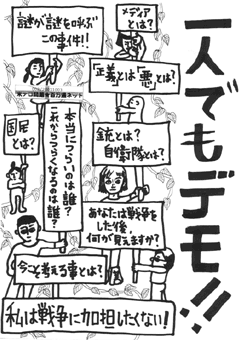 一人でもデモ!!
メディア
とは?
謎が謎を呼ぶ
この事件!!
「正義」とは「悪」とは?
国民
とは?
本当につらいのは誰?
これからつらくなるのは誰?
銃とは?
自衛隊とは?
あなたは戦争を
した後、
何が見えますか?
今こそ考える事とは?
私は戦争に加担したくない!